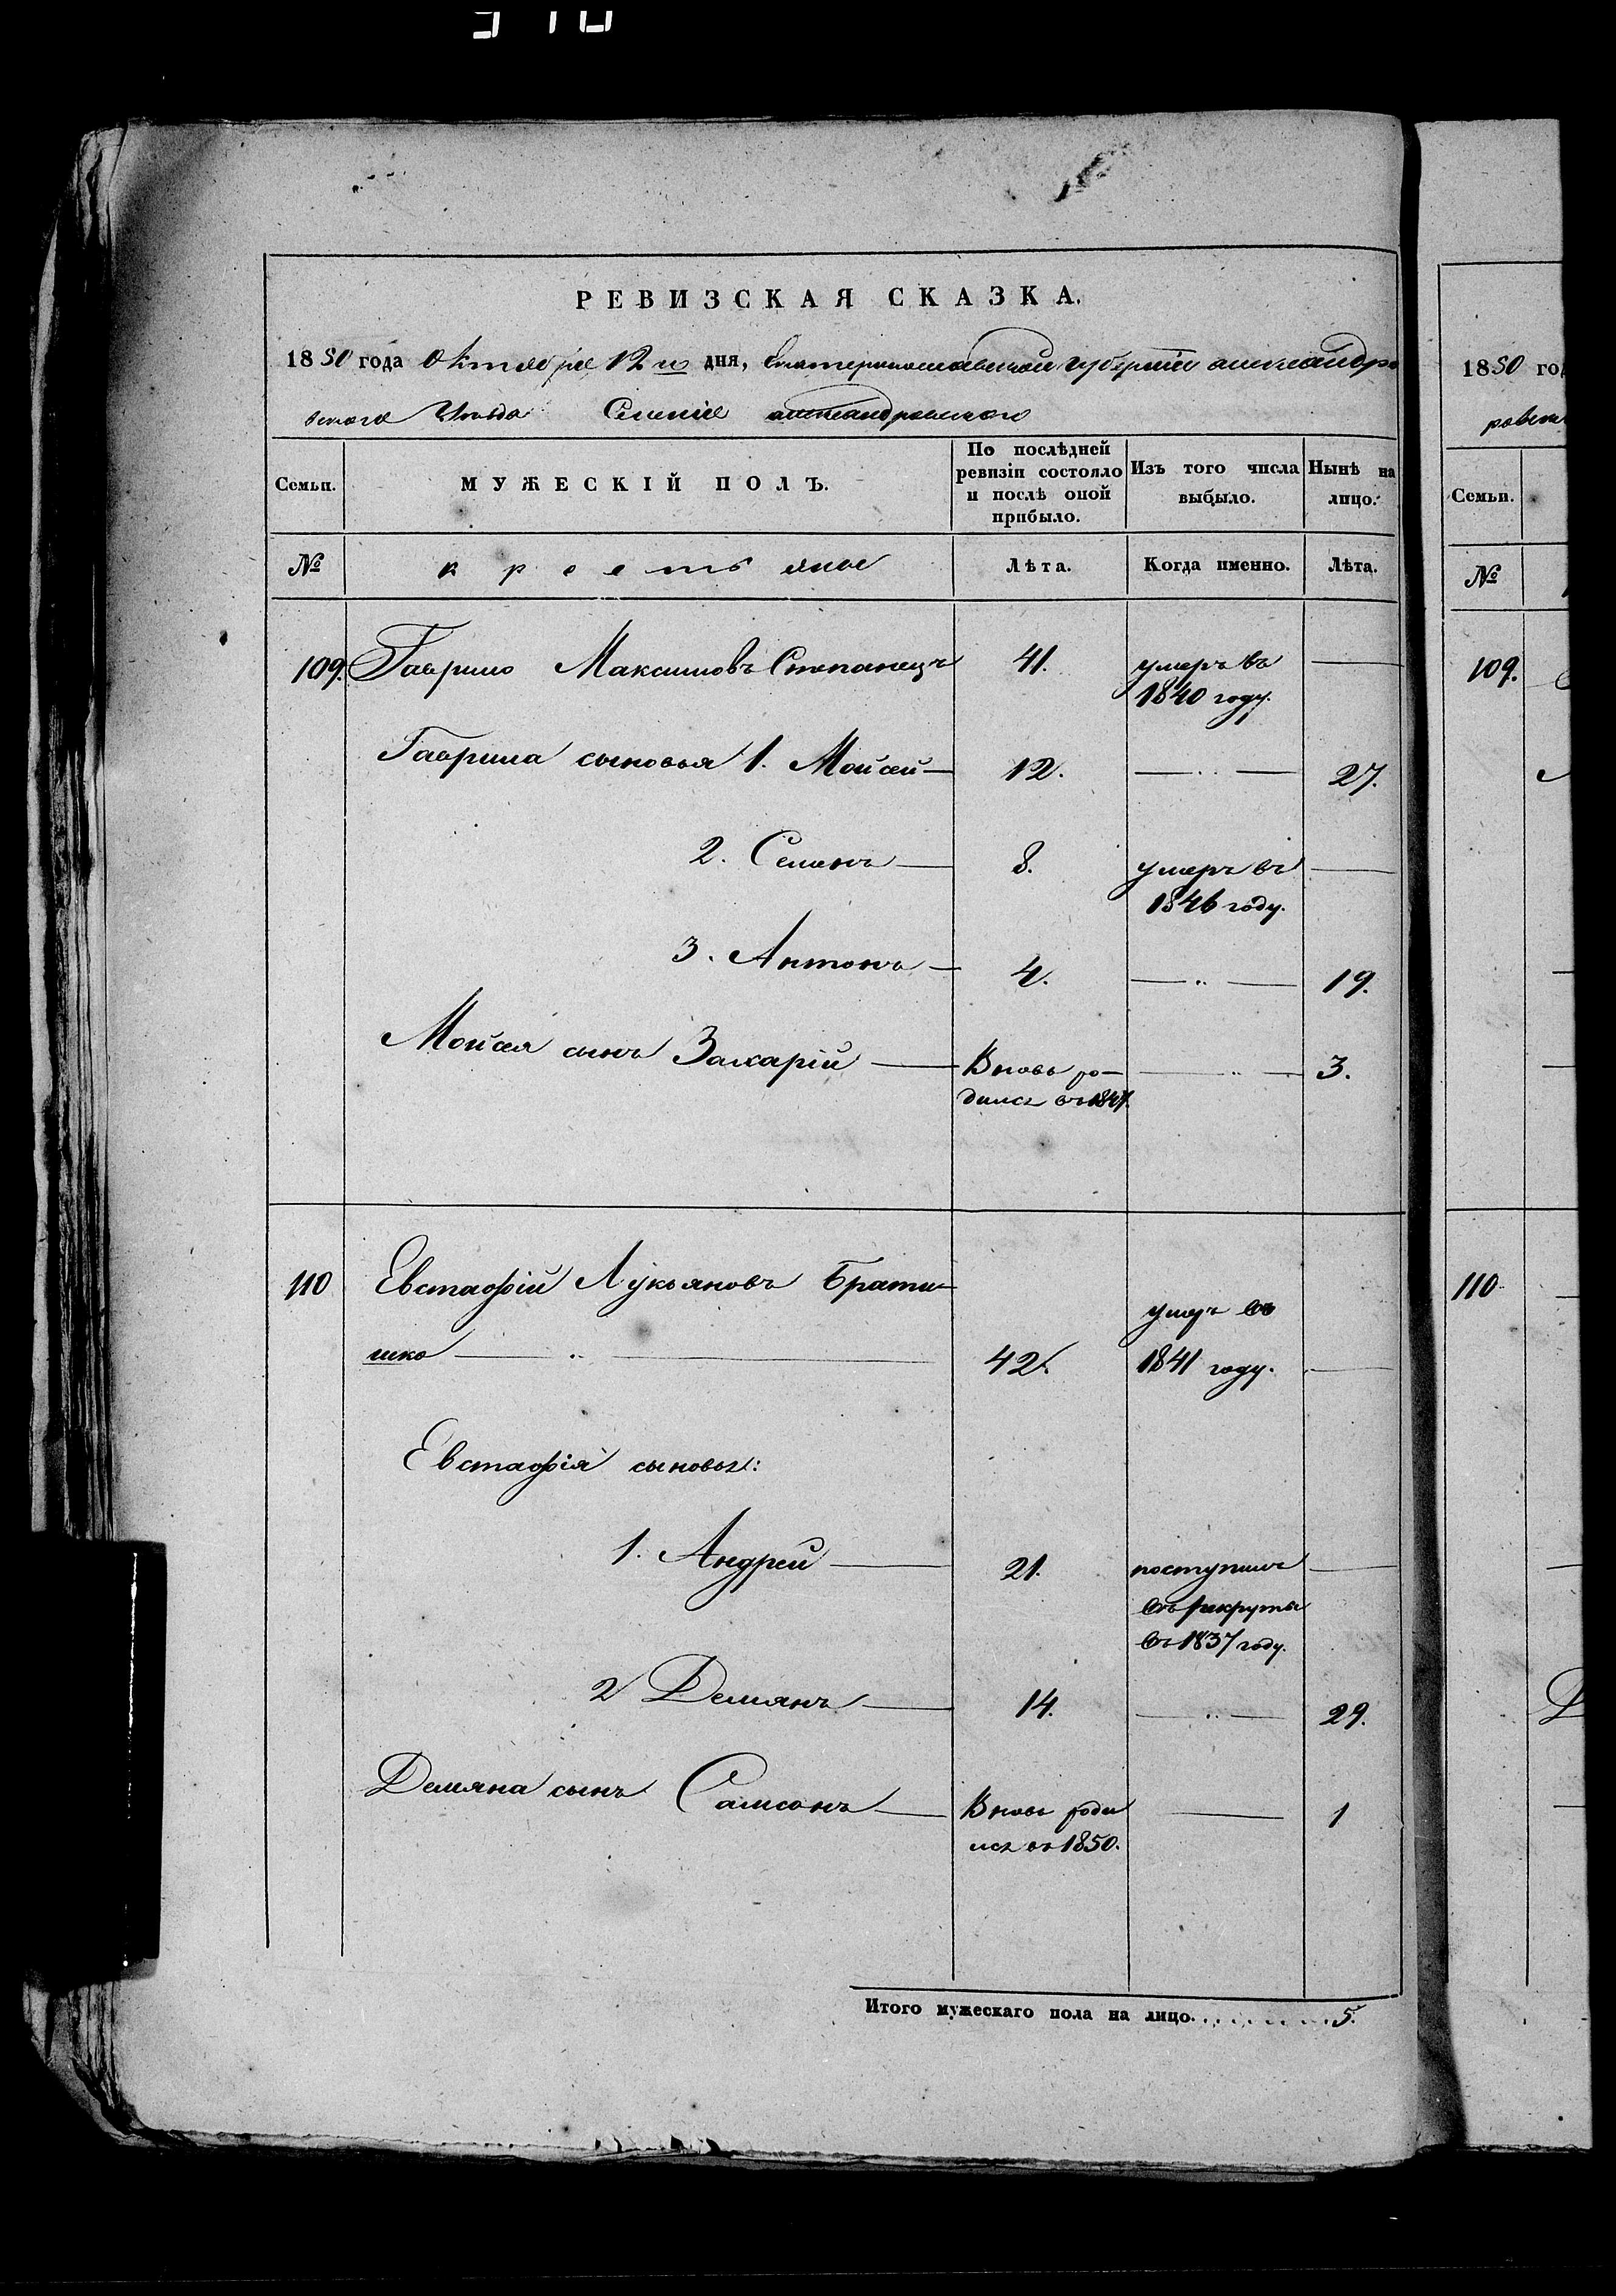 РЕВИЗСКАЯ СКАЗКА.
1850 года Октября 12го дня, Екатеринославской губерніи александро
вского Уѣзда Селенія александровского
Семьи.
МУЖЕСКІЙ ПОЛЪ.
По послѣдней
ревизіи состояло
и послѣ оной
прибыло.
Изъ того числа
выбыло.
Нынѣ на
лицо.
№ крестьяне Лѣта. Когда именно. Лѣта.
109. Гаврило Максимовъ Степанецъ 41. умеръ въ —
1840 году.
Гаврила сыновья 1. Мойсей — 12. — „ — 27.
2. Семенъ — 8. умеръ въ —
1846 году.
3. Антонъ — 4. — „ — 19.
Мойсея сынъ Захарій — Вновь ро- — „ — 3.
дился въ 1847.
110 Евстафій Лукьяновъ Брати
шко — „ — 42. умеръ въ
1841 году. —
Евстафія сыновья:
1. Андрей — 21. поступилъ —
въ рекруты
въ 1837 году.
2 Демянъ — 14. — „ — 29.
Демяна сынъ Самсонъ — Вновь роди — 1
лся въ 1850.
Итого мужескаго пола на лицо. . . . . . . . 5.
1850 год
ровск
Семьи.
№
109.
110